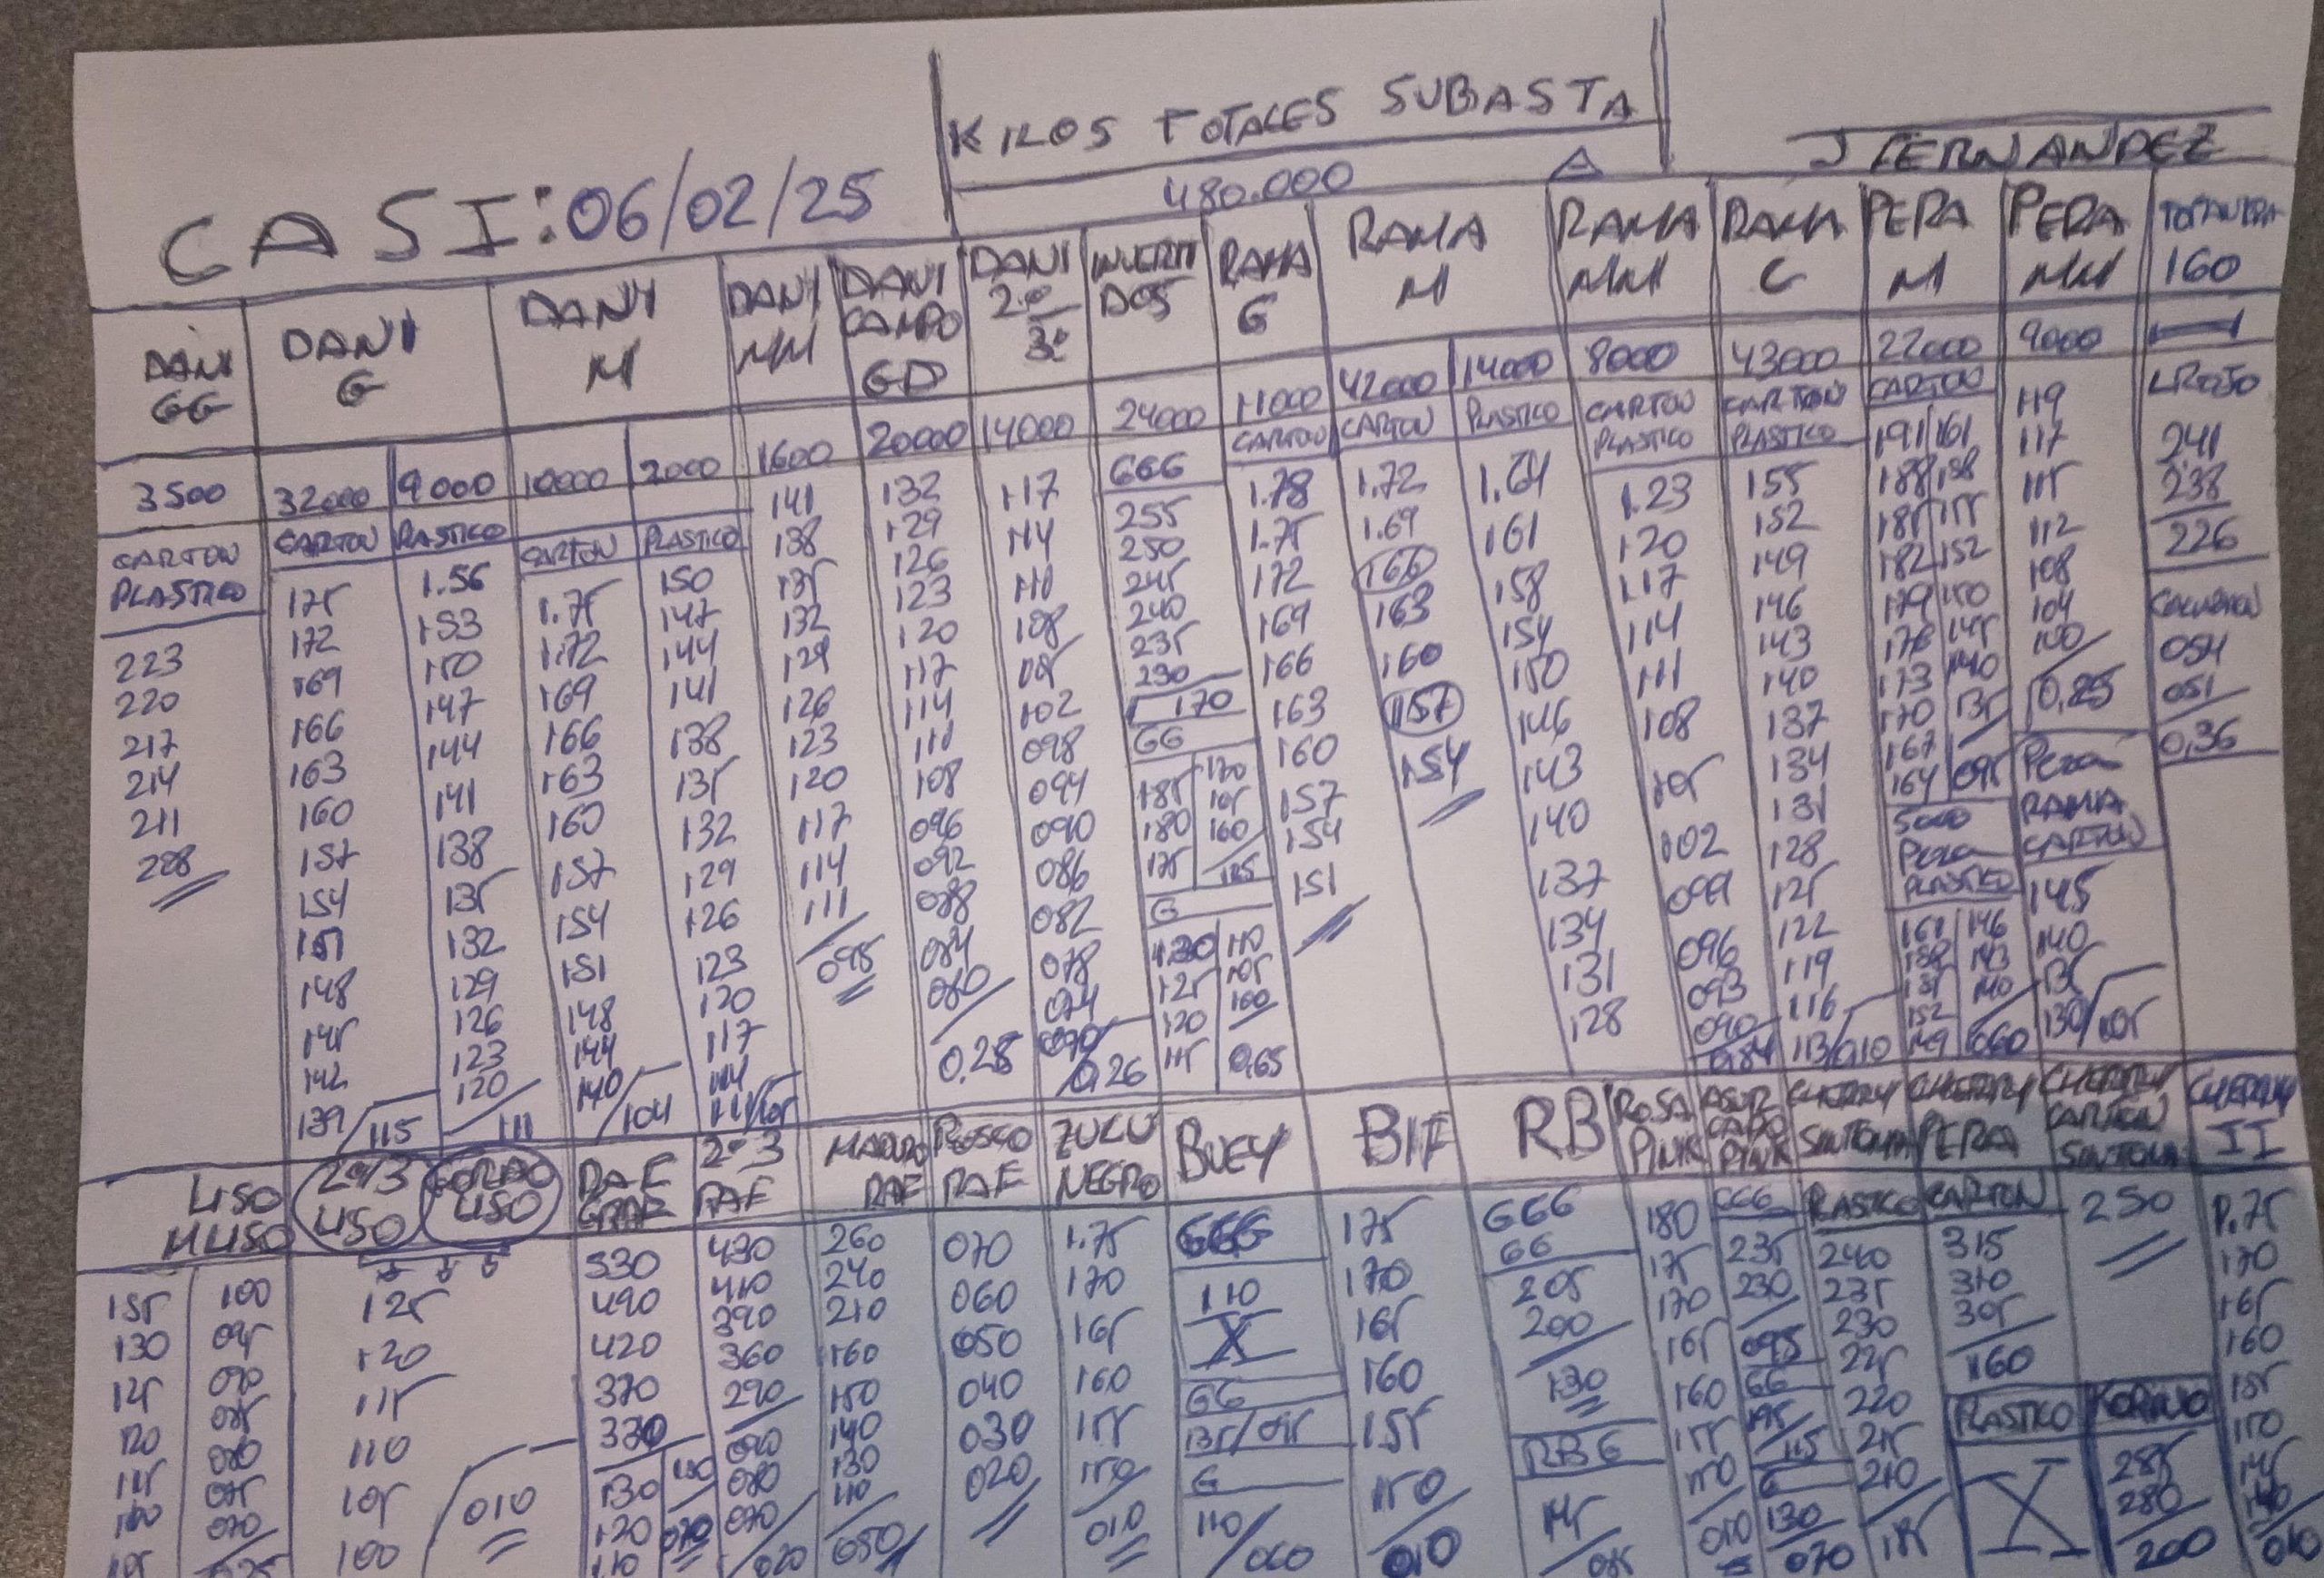 KILOS TOTALES SUBASTA
480.000
J FERNANDEZ
CASI: 06/02/25
DANI GG
3500
CARTON
PLASTICO
223
220
217
214
211
208
DANI G
32000 9000
CARTON PLASTICO
175 1.56
172 153
169 150
166 147
163 144
160 141
157 138
154 135
151 132
148 129
145 126
142 123
139 / 115 120 / 111
DANI M
10000 2000
CARTON PLASTICO
1.75 150
172 147
169 144
166 141
163 138
160 135
157 132
154 129
151 126
148 123
144 120
140 / 104 117
114
111/105
DANI MM
1600
141
138
135
132
129
126
123
120
117
114
111
098
DANI CAMPO GD
20000
132
129
126
123
120
117
114
111
108
096
092
088
084
080
0,28
DANI 2º 3º
14000
117
114
110
108
105
102
098
094
090
086
082
078
074
070
0,26
INVERTIDOS
24000
GGG
255
250
245
240
235
230
170
GG
185 170
180 165
175 160
G
1.30 110
125 105
120 100
115 0,65
RAMA G
11000
CARTON
1.78
1.75
172
169
166
163
160
157
154
151
RAMA M
42000 14000
CARTON PLASTICO
1.72 1.64
1.69 161
166 158
163 154
160 150
157 146
154 143
140
137
134
131
128
RAMA MM
8000
CARTON
PLASTICO
1.23
120
117
114
111
108
105
102
099
096
093
090
0,84
RAMA C
43000
CARTON
PLASTICO
155
152
149
146
143
140
137
134
131
128
125
122
119
116
113/010
PERA M
22000
CARTON
191 161
188 158
185 155
182 152
179 150
176 145
173 140
170 135
167
164 095
5000
Pera
PLASTICO
161 146
158 143
155 140
152
149 060
PERA MM
9000
119
117
115
112
108
104
100
0,85
Pera
RAMA
CARTON
145
140
135
130/105
160
LROJO
241
238
226
054
051
0,36
LISO
MLISO
155 100
130 095
125 090
120 085
115 080
075
070
2º/3 LISO
GORDO LISO
125
120
115
110
105
100
010
RAF GRAF
530
490
420
370
330
130
120
110
2º 3 RAF
430
410
390
360
290
090
080
070
020
MADURO RAF
260
240
210
160
150
140
130
110
050
ROSCO RAF
070
060
050
040
030
020
ZULU NEGRO
1.75
170
165
160
155
150
010
BUEY
GGG
110
X
GG
135/095
G
110/060
BIF
175
170
165
160
155
150
010
RB
GGG
GG
205
200
130
RBG
ROSA PINK
180
175
170
165
160
155
150
010
PINK
GGG
235
230
095
GG
G
130
070
CHERRY SINTOMA
PLASTICO
240
235
230
225
220
215
210
185
CHERRY PERA
CARTON
315
310
305
160
PLASTICO
X
CHERRY CARTON SINTOMA
250
285
280
200
CHERRY II
1.75
170
165
160
155
150
145
140
010